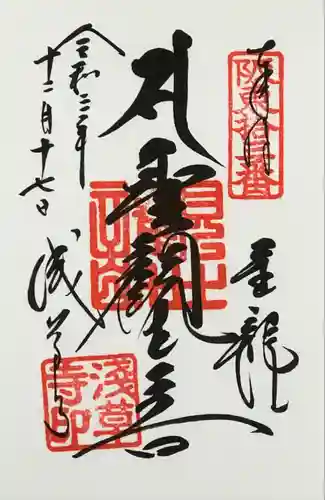 奉拝
坂東拾三番
金龍山
聖観世音
浅草寺
令和二年
十二月十七日
淺草寺印